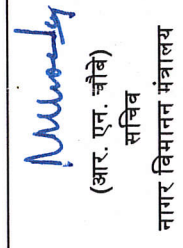 (आर. एन. चौबे)
सचिव
नागर विमानन मंत्रालय